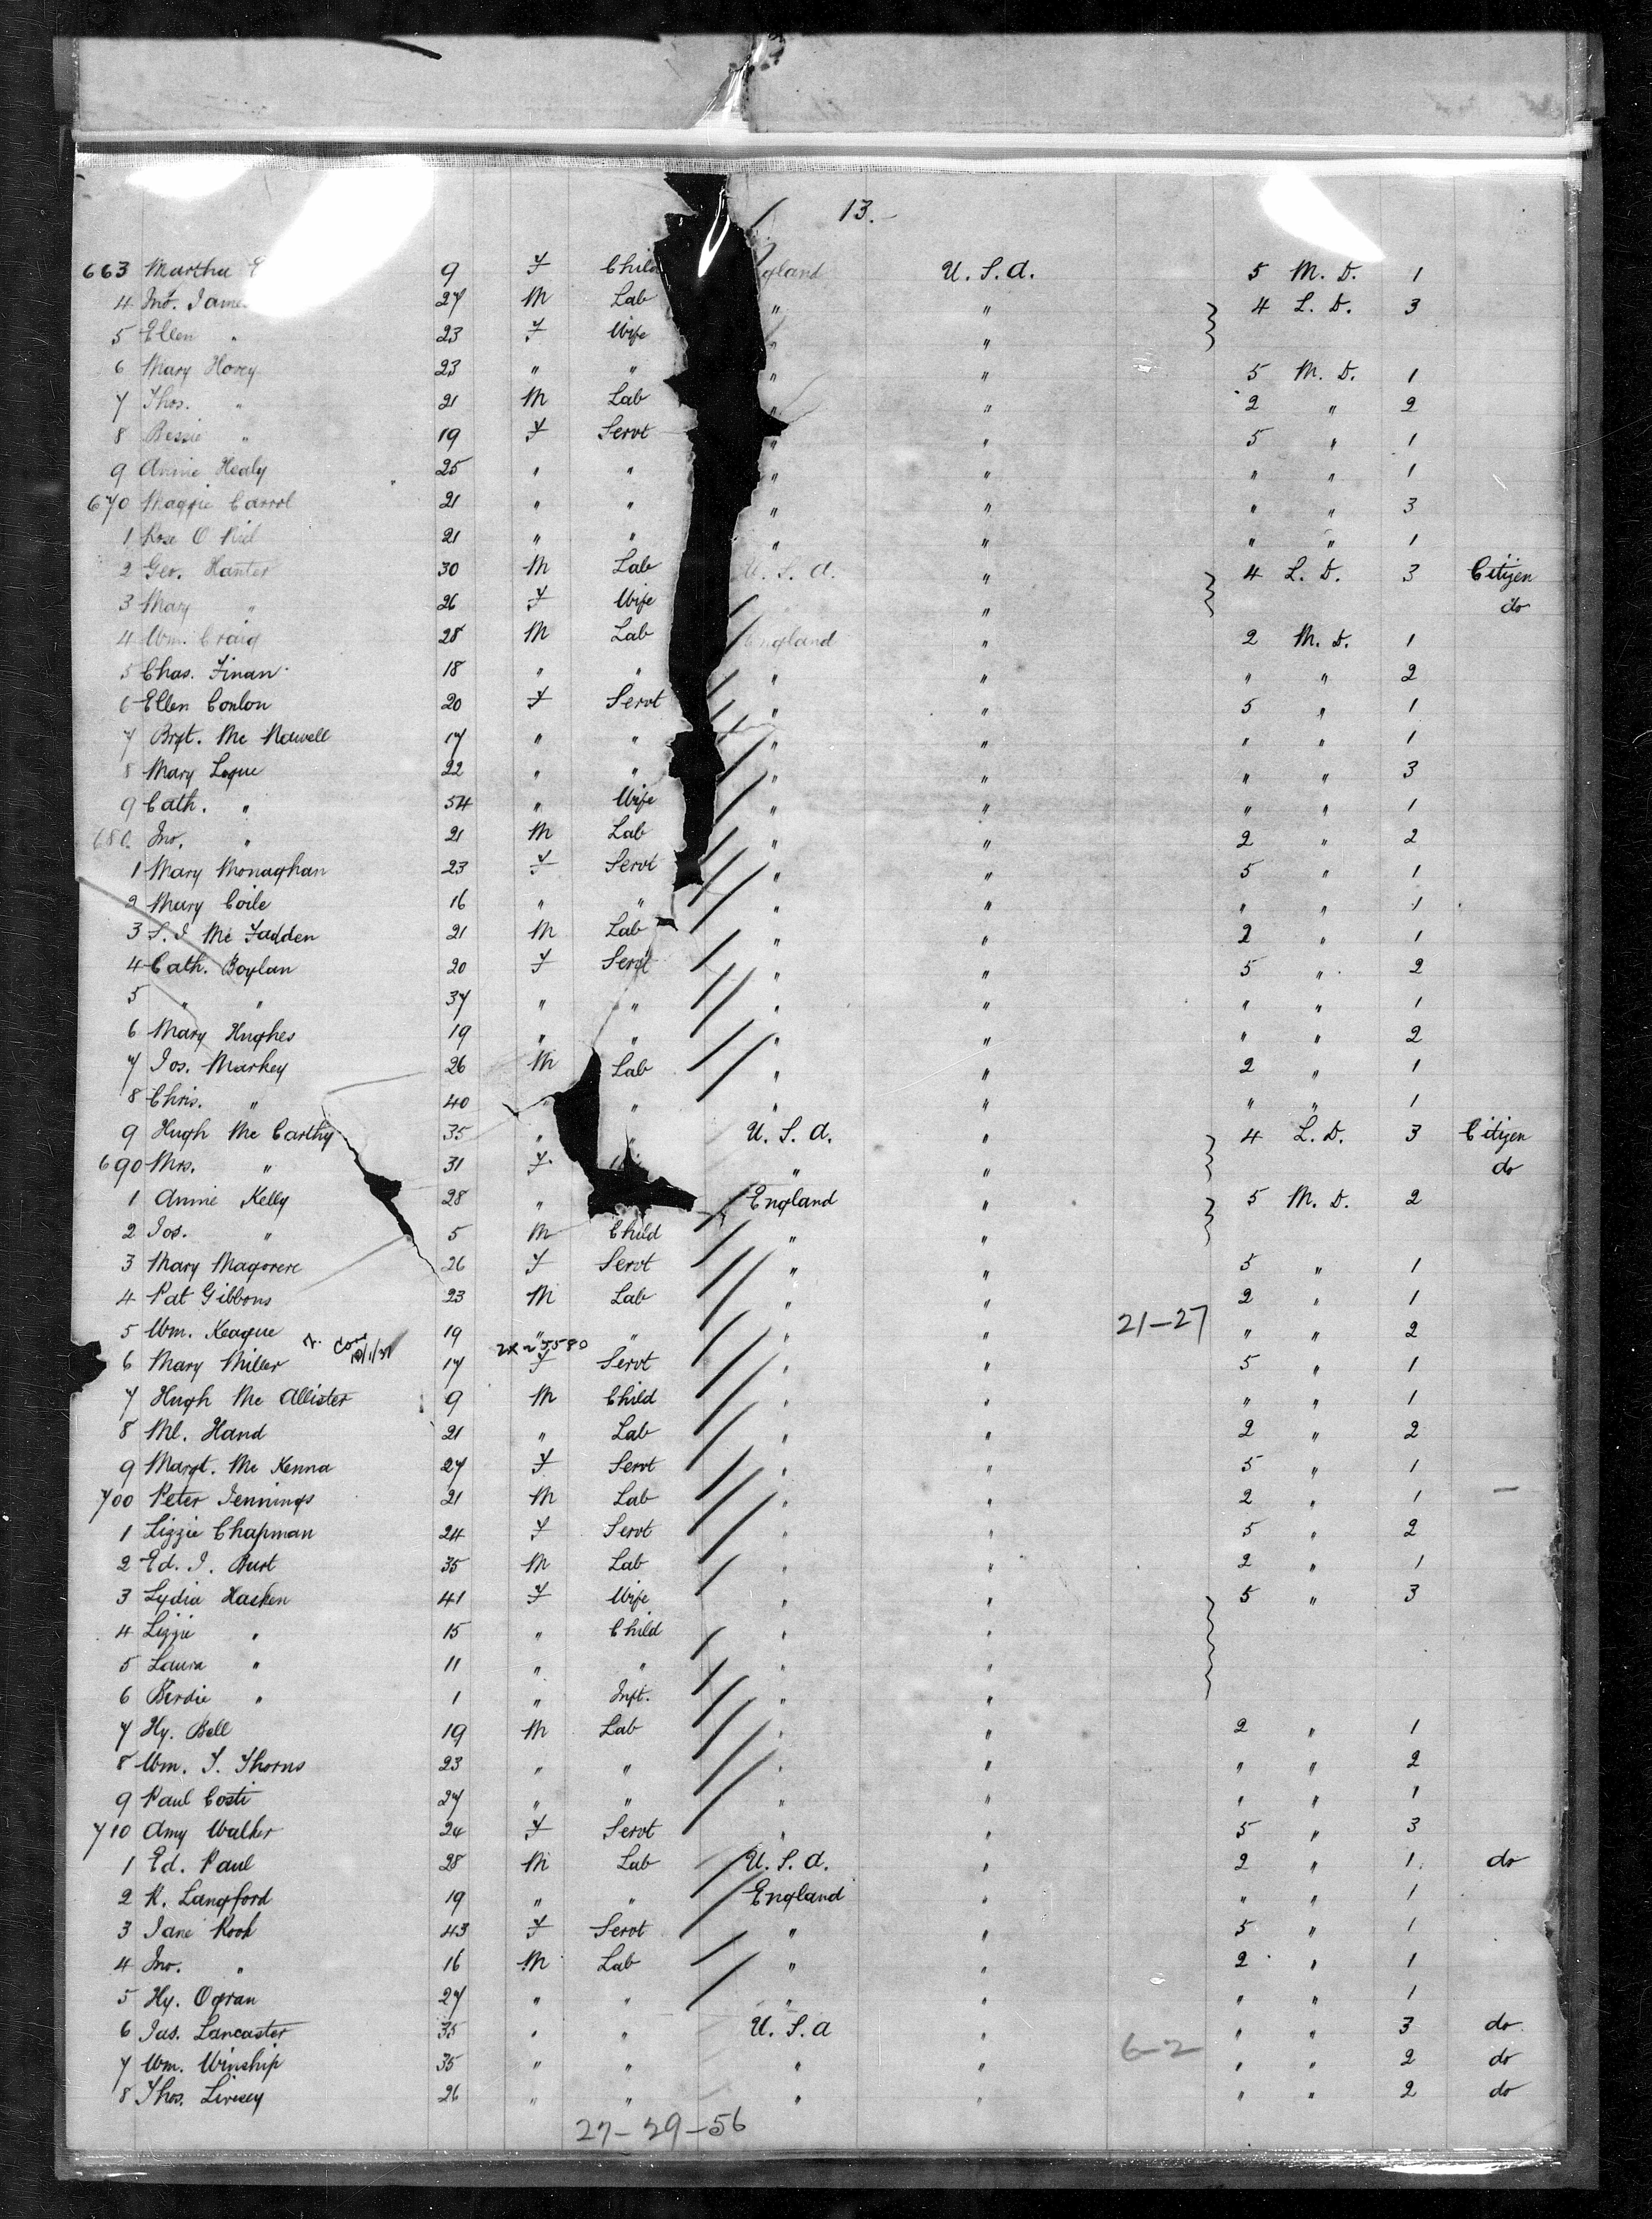 13.
663 Martha 9 F Child gland U.S.A. 5 M.D. 1
4 Jno. James 27 M Lab " " 4 L.D. 3
5 Ellen " 23 F Wife " "
6 Mary Hovey 23 " " " " 5 M.D. 1
7 Thos. " 21 M Lab " " 2 " 2
8 Bessie " 19 F Servt " " 5 " 1
9 Annie Healy 25 " " " " " " 1
670 Maggie Carrol 21 " " " " " " 3
1 Rose O Niel 21 " " " " " " 1
2 Geo. Hanter 30 M Lab U.S.A. " 4 L.D. 3 Citizen
3 Mary " 26 F Wife " do
4 Wm. Craig 28 M Lab England " 2 M.D. 1
5 Chas. Finan 18 " " " " " " 2
6 Ellen Conlon 20 F Servt " " 5 " 1
7 Brgt. Mc 17 " " " " " " 1
8 Mary Logue 22 " " " " " " 3
9 Cath. " 54 " Wife " " " " 1
680 Jno. " 21 M Lab " " 2 " 2
1 Mary Monaghan 23 F Servt " " 5 " 1
2 Mary Coile 16 " " " " " " 1
3 S.J Mc Fadden 21 M Lab " " 2 " 1
4 Cath. Boylan 20 F Servt " " 5 " 2
5 " " 37 " " " " " " 1
6 Mary Hughes 19 " " " " " " 2
7 Jos. Markey 26 M Lab " " 2 " 1
8 Chris. " 40 " " " " " " 1
9 Hugh Mc Carthy 35 " " U.S.A. " 4 L.D. 3 Citizen
690 Mrs. " 31 F " " do
1 Annie Kelly 28 " England " 5 M.D. 2
2 Jos. " 5 M Child " "
3 Mary Magorere 26 F Servt " " 5 " 1
4 Pat Gibbons 23 M Lab " " 2 " 1
21-27
5 Wm. Keague 19 " " " " " " 2
6 Mary Miller 17 F Servt " " 5 " 1
7 Hugh Mc Allister 9 M Child " " " " 1
8 Ml. Hand 21 " Lab " " 2 " 2
9 Margt. Mc Kenna 27 F Servt " " 5 " 1
700 Peter Jennings 21 M Lab " " 2 " 1
1 Lizzie Chapman 24 F Servt " " 5 " 2
2 Ed. J. Burt 35 M Lab " " 2 " 1
3 Lydia Hasken 41 F Wife " " 5 " 3
4 Lizzie " 15 " Child " "
5 Laura " 11 " " " "
6 Berdie " 1 " Inft. " "
7 Hy. Bell 19 M Lab " " 2 " 1
8 Wm. T. Thorns 23 " " " " " " 2
9 Paul Costi 27 " " " " " " 1
710 Amy Walker 24 F Servt " " 5 " 3
1 Ed. Paul 28 M Lab U.S.A. " 2 " 1 do
2 R. Langford 19 " " England " " " 1
3 Jane Rook 43 F Servt " " 5 " 1
4 Jno. " 16 M Lab " " 2 " 1
5 Hy. Ogran 27 " " " " " " 1
6 Jas. Lancaster 35 " " U.S.A " " " 3 do
6-2
7 Wm. Winship 35 " " " " " " 2 do
8 Thos. Livesey 26 " " " " " " 2 do
27-29-56